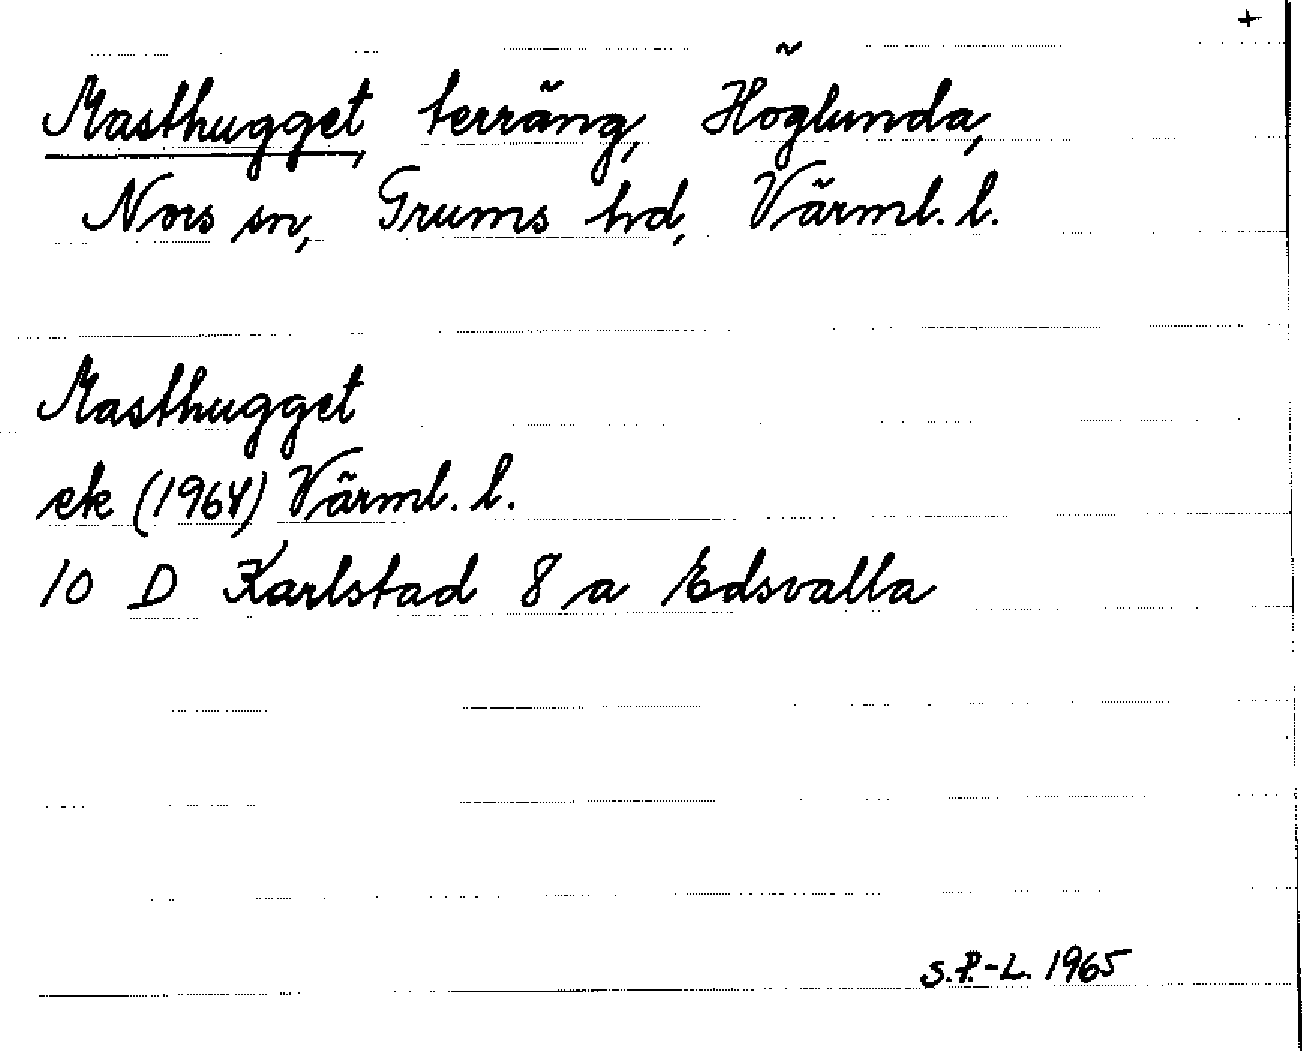 +
Masthugget, terräng, Höglunda,
Nors sn, Grums hd, Värml. l.
Masthugget
ek (1964) Värml. l.
10 D Karlstad 8 a Edsvalla
S.P.-L. 1965